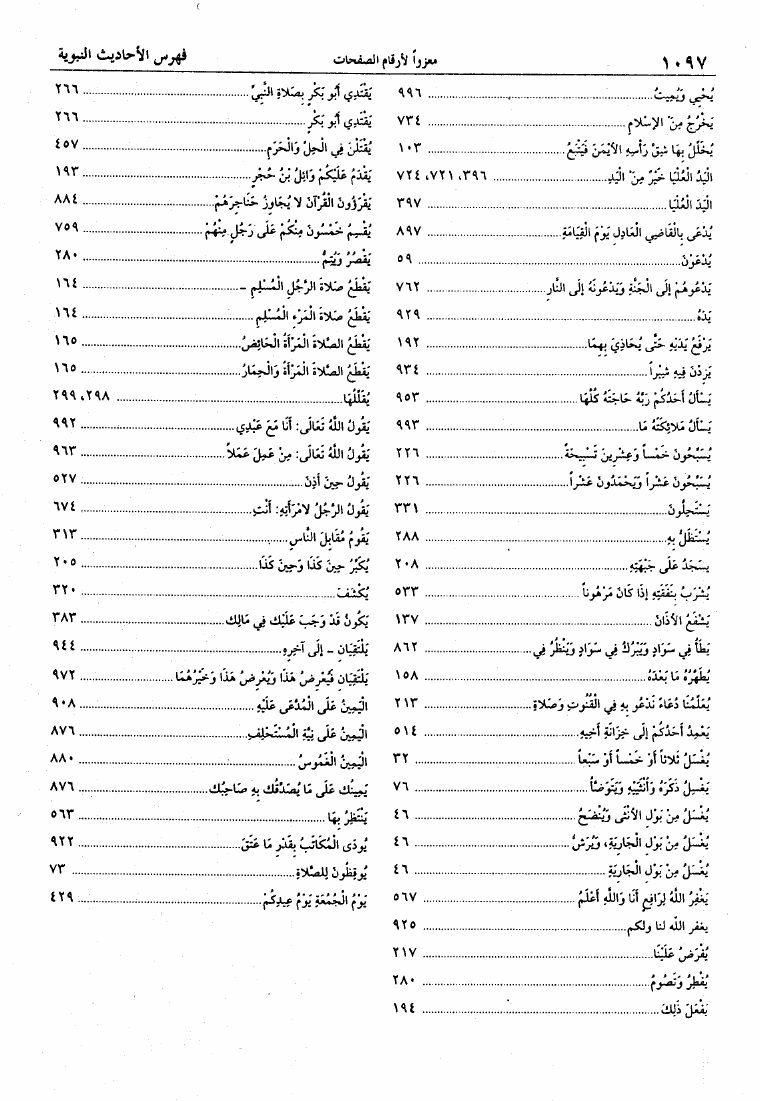 ١٠٩٧ معزواً لأرقام الصفحات فهرس الأحاديث النبوية
يُحْيِي وَيُمِيتُ ٩٩٦
يَخْرُجُ مِنَ الإِسْلامِ ٧٣٤
يُخَلِّلُ بِهَا شِقَّ رَأْسِهِ الأَيْمَنَ فَيَتْبَعُ ١٠٣
الْيَدُ الْعُلْيَا خَيْرٌ مِنَ الْيَدِ ٣٩٦، ٧٢١، ٧٢٤
الْيَدُ الْعُلْيَا ٣٩٧
يُدْعَى بِالْقَاضِي الْعَادِلِ يَوْمَ الْقِيَامَةِ ٨٩٧
يُدْعَوْنَ ٥٩
يَدْعُوهُمْ إِلَى الْجَنَّةِ وَيَدْعُونَهُ إِلَى النَّارِ ٧٦٢
يَدَهُ ٩٢٩
يَرْفَعُ يَدَيْهِ حَتَّى يُحَاذِيَ بِهِمَا ١٩٢
يَزِدْنَ فِيهِ شِبْراً ٩٣٤
يَسْأَلُ أَحَدُكُمْ رَبَّهُ حَاجَتَهُ كُلَّهَا ٩٥٣
يَسْأَلُ مَلائِكَتَهُ مَا ٩٩٣
يُسَبِّحُونَ خَمْساً وَعِشْرِينَ تَسْبِيحَةً ٢٢٦
يُسَبِّحُونَ عَشْراً وَيَحْمَدُونَ عَشْراً ٢٢٦
يَسْتَحِلُّونَ ٣٣١
يُسْتَظَلُّ بِهِ ٢٨٨
يسجدُ عَلَى جَبْهَتِهِ ٢٠٨
يُشْرَبُ بِنَفَقَتِهِ إِذَا كَانَ مَرْهُوناً ٥٣٣
يَشْفَعُ الأَذَانَ ١٣٧
يَطَأُ فِي سَوَادٍ وَيَبْرُكُ فِي سَوَادٍ وَيَنْظُرُ فِي ٨٦٢
يُطَهِّرُهُ مَا بَعْدَهُ ١٥٨
يُعَلِّمُنَا دُعَاءً نَدْعُو بِهِ فِي الْقُنُوتِ وَصَلاةِ ٢١٣
يَعْمِدُ أَحَدُكُمْ إِلَى خِزَانَةِ أَخِيهِ ٥١٤
يُغْسَلُ ثَلاثاً أَوْ خَمْساً أَوْ سَبْعاً ٣٢
يَغْسِلُ ذَكَرَهُ وَأُنْثَيَيْهِ وَيَتَوَضَّأُ ٧٦
يُغْسَلُ مِنْ بَوْلِ الأُنْثَى وَيُنْضَحُ ٤٦
يُغْسَلُ مِنْ بَوْلِ الْجَارِيَةِ، وَيُرَشُّ ٤٦
يُغْسَلُ مِنْ بَوْلِ الْجَارِيَةِ ٤٦
يَغْفِرُ اللَّهُ لِرَافِعٍ أَنَا وَاللَّهِ أَعْلَمُ ٥٦٧
يغفر اللّه لنا ولكم ٩٢٥
يُفْرَضُ عَلَيْنَا ٢١٧
يُفْطِرُ وَتَصُومُ ٢٨٠
يَفْعَلُ ذَلِكَ ١٩٤
يَقْتَدِي أَبُو بَكْرٍ بِصَلاةِ النَّبِيِّ ٢٦٦
يَقْتَدِي أَبُو بَكْرٍ ٢٦٦
يُقْتَلْنَ فِي الْحِلِّ وَالْحَرَمِ ٤٥٧
يَقْدَمُ عَلَيْكُمْ وَائِلُ بْنُ حُجْرٍ ١٩٣
يَقْرَؤُونَ الْقُرْآنَ لا يُجَاوِزُ حَنَاجِرَهُمْ ٨٨٤
يُقْسِمُ خَمْسُونَ مِنْكُمْ عَلَى رَجُلٍ مِنْهُمْ ٧٥٩
يَقْصُرُ وَيُتِمُّ ٢٨٠
يَقْطَعُ صَلاةَ الرَّجُلِ الْمُسْلِمِ ـ ١٦٤
يَقْطَعُ صَلاةَ الْمَرْءِ الْمُسْلِمِ ١٦٤
يَقْطَعُ الصَّلاةَ الْمَرْأَةُ الْحَائِضُ ١٦٥
يَقْطَعُ الصَّلاةَ الْمَرْأَةُ وَالْحِمَارُ ١٦٥
يُقَلِّلُهَا ٢٩٨، ٢٩٩
يَقُولُ اللَّهُ تَعَالَى: أَنَا مَعَ عَبْدِي ٩٩٢
يَقُولُ اللَّهُ تَعَالَى: مِنْ عَمِلَ عَمَلاً ٩٦٣
يَقُولُ حِينَ أَذِنَ ٥٢٧
يَقُولُ الرَّجُلُ لامْرَأَتِهِ: أَنْتِ ٦٧٤
يَقُومُ مُقَابِلَ النَّاسِ ٣١٣
يُكَبِّرُ حِينَ كَذَا وَحِينَ كَذَا ٢٠٥
يُكْشَفَ ٣٢٠
يَكُونُ قَدْ وَجَبَ عَلَيْكَ فِي مَالِكَ ٣٨٣
يَلْتَقِيَانِ ـ إِلَى آخِرِهِ ٩٤٤
يَلْتَقِيَانِ فَيُعْرِضُ هَذَا وَيُعْرِضُ هَذَا وَخَيْرُهُمَا ٩٧٢
الْيَمِينُ عَلَى الْمُدَّعَى عَلَيْهِ ٩٠٨
الْيَمِينُ عَلَى نِيَّةِ الْمُسْتَحْلِفِ ٨٧٦
الْيَمِينُ الْغَمُوسُ ٨٨٠
يَمِينُكَ عَلَى مَا يُصَدِّقُكَ بِهِ صَاحِبُكَ ٨٧٦
يَنْتَظِرُ بِهَا ٥٦٣
يُودَى الْمُكَاتَبُ بِقَدْرِ مَا عَتَقَ ٩٢٢
يُوقِظُونَ لِلصَّلاةِ ٧٣
يَوْمُ الْجُمُعَةِ يَوْمُ عِيدِكُمْ ٤٢٩